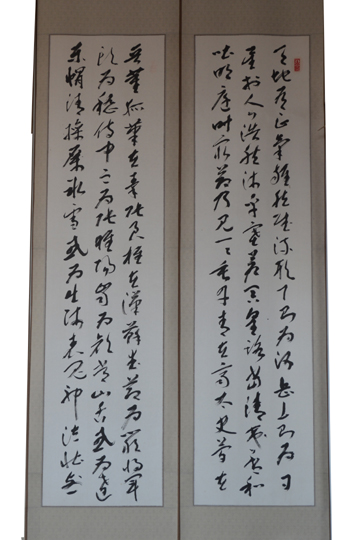 天地有正氣雜然賦流形下則為河嶽上則為日
星於人曰浩然沛乎塞蒼冥皇路當清夷含和
吐明庭時窮節乃見一一垂丹青在齊太史簡在
晉董狐筆在秦張良椎在漢蘇武節為嚴將軍
頭為嵇侍中血為張睢陽齒為顏常山舌或為遼
東帽清操厲冰雪或為出師表鬼神泣壯烈